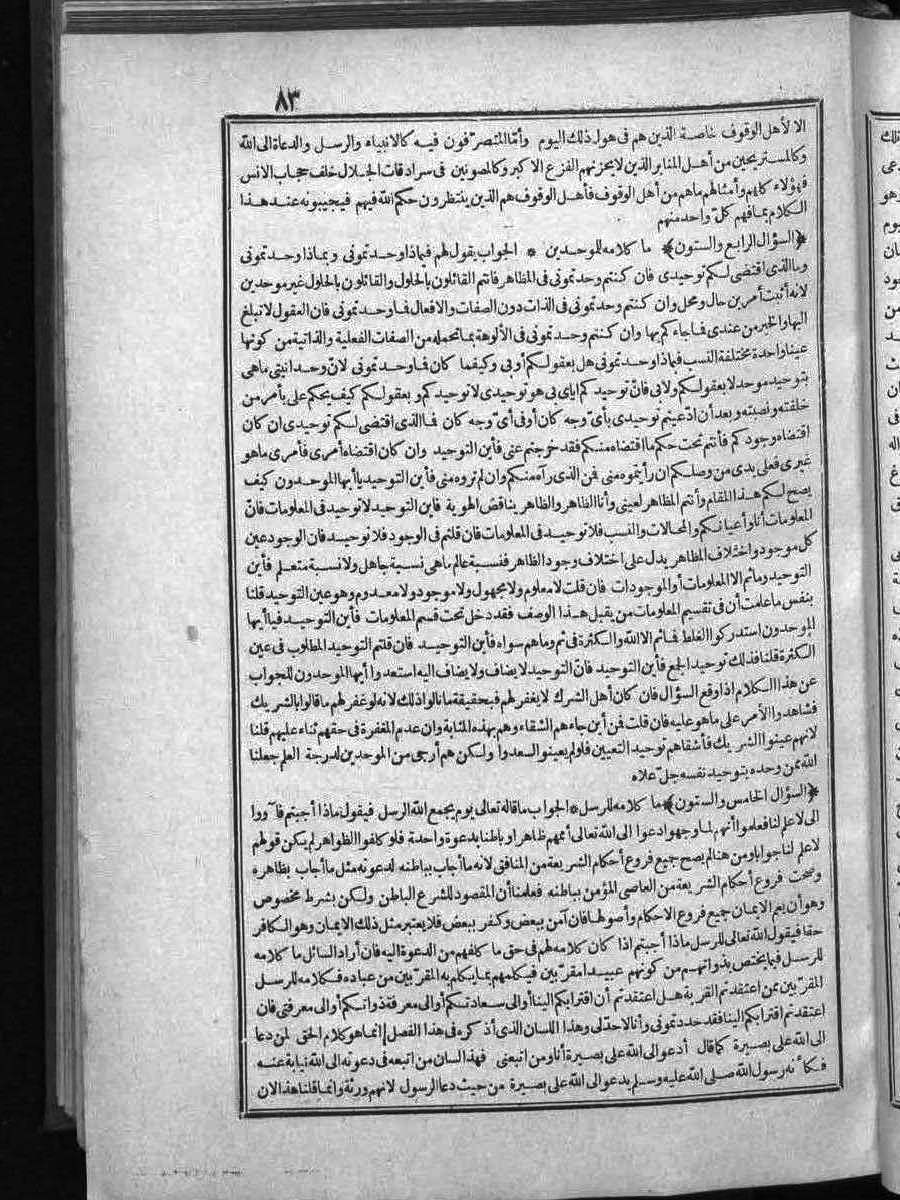 ٨٣
الا لأهل الوقوف خاصة الذين هم فى هول ذلك اليوم وأمّا المتصرّفون فيه كالانبياء والرسل والدعاة الى الله
وكالمستريحين من أهل المنابر الذين لا يحزنهم الفزع الا كبر وكالمصونين فى سرادقات الجلال خلف حجاب الانس
فهؤلاء كلهم وأمثالهم ماهم من أهل الوقوف فأهل الوقوف هم الذين ينتظرون حكم الله فيهم فيجيبونه عند هذا
الكلام بما فهم كلّ واحد منهم
﴿السؤال الرابع والستون﴾ ما كلامه للموحدين * الجواب يقول لهم فبماذا وحدتمونى وبماذا وحدتمونى
وما الذى اقتضى لكم توحيدى فان كنتم وحدتمونى فى المظاهر فانتم القائلون بالحلول والقائلون بالحلول غير موحدين
لانه أثبت أمرين حال ومحل وان كنتم وحدتمونى فى الذات دون الصفات والافعال فاوحدتمونى فان العقول لا تبلغ
اليها والخبر من عندى فاجاءكم بها وان كنتم وحدتمونى فى الألوهة بما تحمله من الصفات الفعلية والذاتية من كونها
عينا واحدة مختلفة النسب فبماذا وحدتمونى هل بعقولكم أو بى وكيفما كان فاوحدتمونى لانّ وحدانيتى ماهى
بتوحيد موحد لا بعقولكم ولا بى فانّ توحيدكم اياى بى هو توحيدى لا توحيدكم وبعقولكم كيف يحكم على بأمر من
خلقته ونصبته وبعد أن ادّعيتم توحيدى بأىّ وجه كان أو فى أىّ وجه كان فما الذى اقتضى لكم توحيدى ان كان
اقتضاه وجودكم فأنتم تحت حكم ما اقتضاه منكم فقد خرجتم عنى فأين التوحيد وان كان اقتضاه أمرى فأمرى ماهو
غيرى فعلى يدى من وصلكم ان رأيتموه منى فمن الذى رآه منكم وان لم تروه منى فأين التوحيد يا أيها الموحدون كيف
يصح لكم هذا المقام وأنتم المظاهر لعينى وأنا الظاهر والظاهر يناقض الهوية فاين التوحيد لا توحيد فى المعلومات فانّ
المعلومات أنا وأعيانكم والمحالات والنسب فلا توحيد فى المعلومات فان قلتم فى الوجود فلا توحيد فان الوجود عين
كل موجود واختلاف المظاهر يدل على اختلاف وجود الظاهر فنسبة عالم ماهى نسبة جاهل ولا نسبة متعلم فأين
التوحيد وما ثم الا المعلومات أو الموجودات فان قلت لا معلوم ولا مجهول ولا موجود ولا معدوم وهو عين التوحيد قلنا
بنفس ما علمت أن فى تقسيم المعلومات من يقبل هذا الوصف فقد دخل تحت قسم المعلومات فأين التوحيد فيا أيها
الموحدون استدركوا الغلط فما ثم الا الله والكثرة فى ثم وماهم سواه فأين التوحيد فان قلتم التوحيد المطلوب فى عين
الكثرة قلنا فذلك توحيد الجمع فأين التوحيد فانّ التوحيد لا يضاف ولا يضاف اليه استعدوا أيها الموحدون للجواب
عن هذا الكلام اذا وقع السؤال فان كان أهل الشرك لا يغفر لهم فبحقيقة ما نالوا ذلك لانه لو غفر لهم ما قالوا بالشريك
فشاهدوا الأمر على ماهو عليه فان قلت فمن أين جاءهم الشقاء وهم بهذه المثابة وان عدم المغفرة فى حقهم ثناء عليهم قلنا
لانهم عينوا الشريك فأشقاهم توحيد التعيين فلو لم يعينوا لسعدوا ولكن هم أرجى من الموحدين لدرجة العلم جعلنا
الله ممن وحده بتوحيد نفسه جلّ علاه
﴿السؤال الخامس والستون﴾ ما كلامه للرسل * الجواب ما قاله تعالى يوم يجمع الله الرسل فيقول ماذا أجبتم قالوا
لا علم لنا فعلموا أنهم لما وجهوا دعوا الى الله تعالى أممهم ظاهرا وباطنا بدعوة واحدة فلو كلفوا الظواهر لم يكن قولهم
لا علم لنا جوابا ومن هنا لم يصح جميع فروع أحكام الشريعة من المنافق لانه ما أجاب بباطنه لدعوته مثل ما أجاب بظاهره
وصحت فروع أحكام الشريعة من العاصى المؤمن بباطنه فعلمنا أن المقصود للشرع الباطن ولكن بشرط مخصوص
وهو أن يعم الايمان جميع فروع الاحكام وأصولها فان آمن ببعض وكفر ببعض فلا يعتبر مثل ذلك الايمان وهو الكافر
حقا فيقول الله تعالى للرسل ماذا أجبتم اذا كان كلامه لهم فى حق ما كلفهم من الدعوة اليه فان أراد السائل ما كلامه
للرسل فيما يختص بذواتهم من كونهم عبيدا مقرّبين فيكلمهم بما يكلم به المقرّبين من عباده فكلامه للرسل
المقرّبين ممن اعتقدتم القربة هل اعتقدتم أن اقترابكم الينا أو الى سعادتكم أو الى معرفة ذواتكم أو الى معرفتى فان
اعتقدتم اقترابكم الينا فقد حددتمونى وأنا لا حدّ لى وهذا اللسان الذى أذكره فى هذا الفصل انما هو كلام الحق لمن دعا
الى الله على بصيرة كما قال أدعو الى الله على بصيرة أنا ومن اتبعنى فهذا لسان من اتبعه فى دعوته الى الله نيابة عنه
فكأنه رسول الله صلى الله عليه وسلم يدعو الى الله على بصيرة من حيث دعا الرسول لانهم ورثة وانما قلنا هذا لان